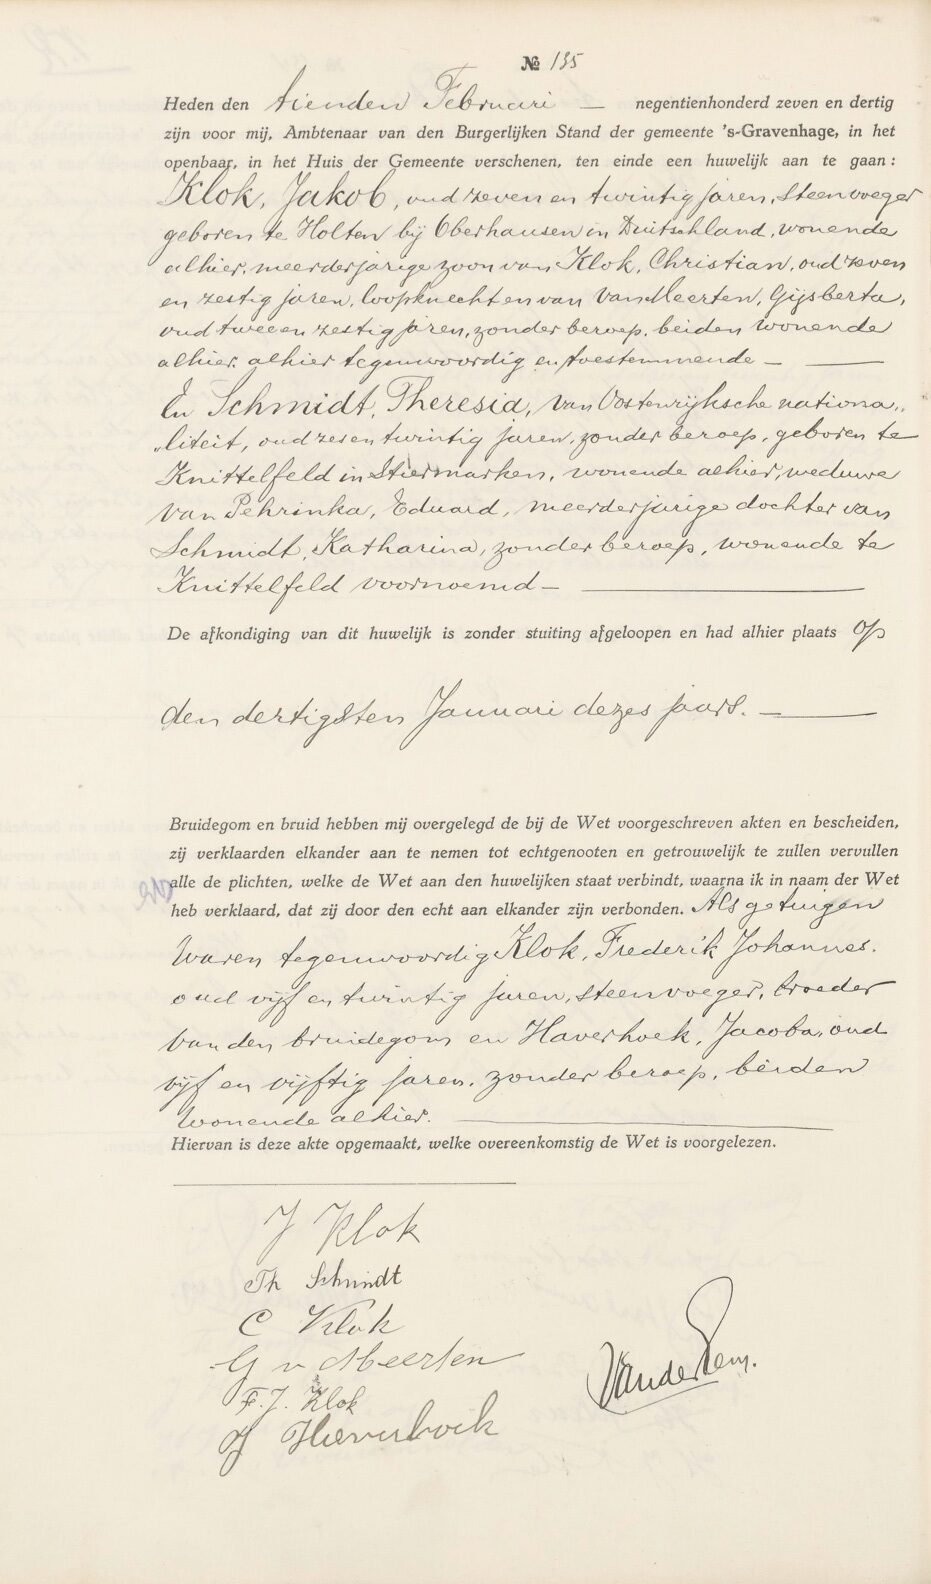 № 135
Heden den tienden Februari — negentienhonderd zeven en dertig
zijn voor mij, Ambtenaar van den Burgerlijken Stand der gemeente 's-Gravenhage, in het
openbaar, in het Huis der Gemeente verschenen, ten einde een huwelijk aan te gaan:
Klok, Jakob, oud zeven en twintig jaren, steenvoeger
geboren te Holten bij Oberhausen in Duitschland, wonende
alhier, meerderjarige zoon van Klok, Christian, oud zeven
en zestig jaren, loopknecht en van van Meerten, Gijsberta,
oud twee en zestig jaren, zonder beroep, beiden wonende
alhier, alhier tegenwoordig en toestemmende —
En Schmidt, Theresia, van Oostenrijksche nationa„
„liteit, oud zes en twintig jaren, zonder beroep, geboren te
Knittelfeld in Stiermarken, wonende alhier, weduwe
van Pehrinka, Eduard, meerderjarige dochter van
Schmidt, Katharina, zonder beroep, wonende te
Knittelfeld voornoemd —
De afkondiging van dit huwelijk is zonder stuiting afgeloopen en had alhier plaats op
den dertigsten Januari dezes jaars. —
Bruidegom en bruid hebben mij overgelegd de bij de Wet voorgeschreven akten en bescheiden,
zij verklaarden elkander aan te nemen tot echtgenooten en getrouwelijk te zullen vervullen
alle de plichten, welke de Wet aan den huwelijken staat verbindt, waarna ik in naam der Wet
heb verklaard, dat zij door den echt aan elkander zijn verbonden. Als getuigen
waren tegenwoordig Klok, Frederik Johannes,
oud vijf en twintig jaren, steenvoeger, broeder
van den bruidegom en Haverhoek, Jacoba, oud
vijf en vijftig jaren, zonder beroep, beiden
wonende alhier.
Hiervan is deze akte opgemaakt, welke overeenkomstig de Wet is voorgelezen.
J Klok
Th Schmidt
C Klok
G v Meerten
F. J. Klok
J Haverhoek